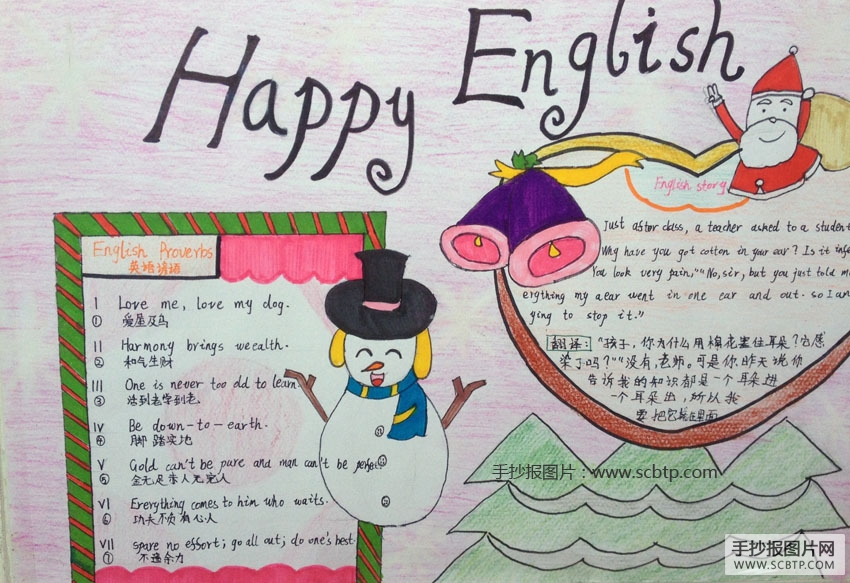 Happy English
English Proverbs
英语谚语
I Love me, love my dog.
① 爱屋及乌
II Harmony brings wealth.
② 和气生财
III One is never too old to learn.
③ 活到老学到老
IV Be down-to-earth.
④ 脚踏实地
V Gold can't be pure and man can't be perfect
⑤ 金无足赤人无完人
VI Everything comes to him who waits.
⑥ 功夫不负有心人
VII spare no effort; go all out; do one's best
⑦ 不遗余力
English story
Just after class, a teacher asked to a student
Why have you got cotton in your ear? Is it infe
You look very pain." "No, sir, but you just told me
erything my aear went in one ear and out. so I am
ying to stop it."
翻译: "孩子,你为什么用棉花塞住耳朵?它感
染了吗?" "没有,老师。可是你昨天说你
告诉我的知识都是一个耳朵进
一个耳朵出,所以我
要把它装在里面
手抄报图片:www.scbtp.com
手抄报图片网
WWW.SCBTP.COM